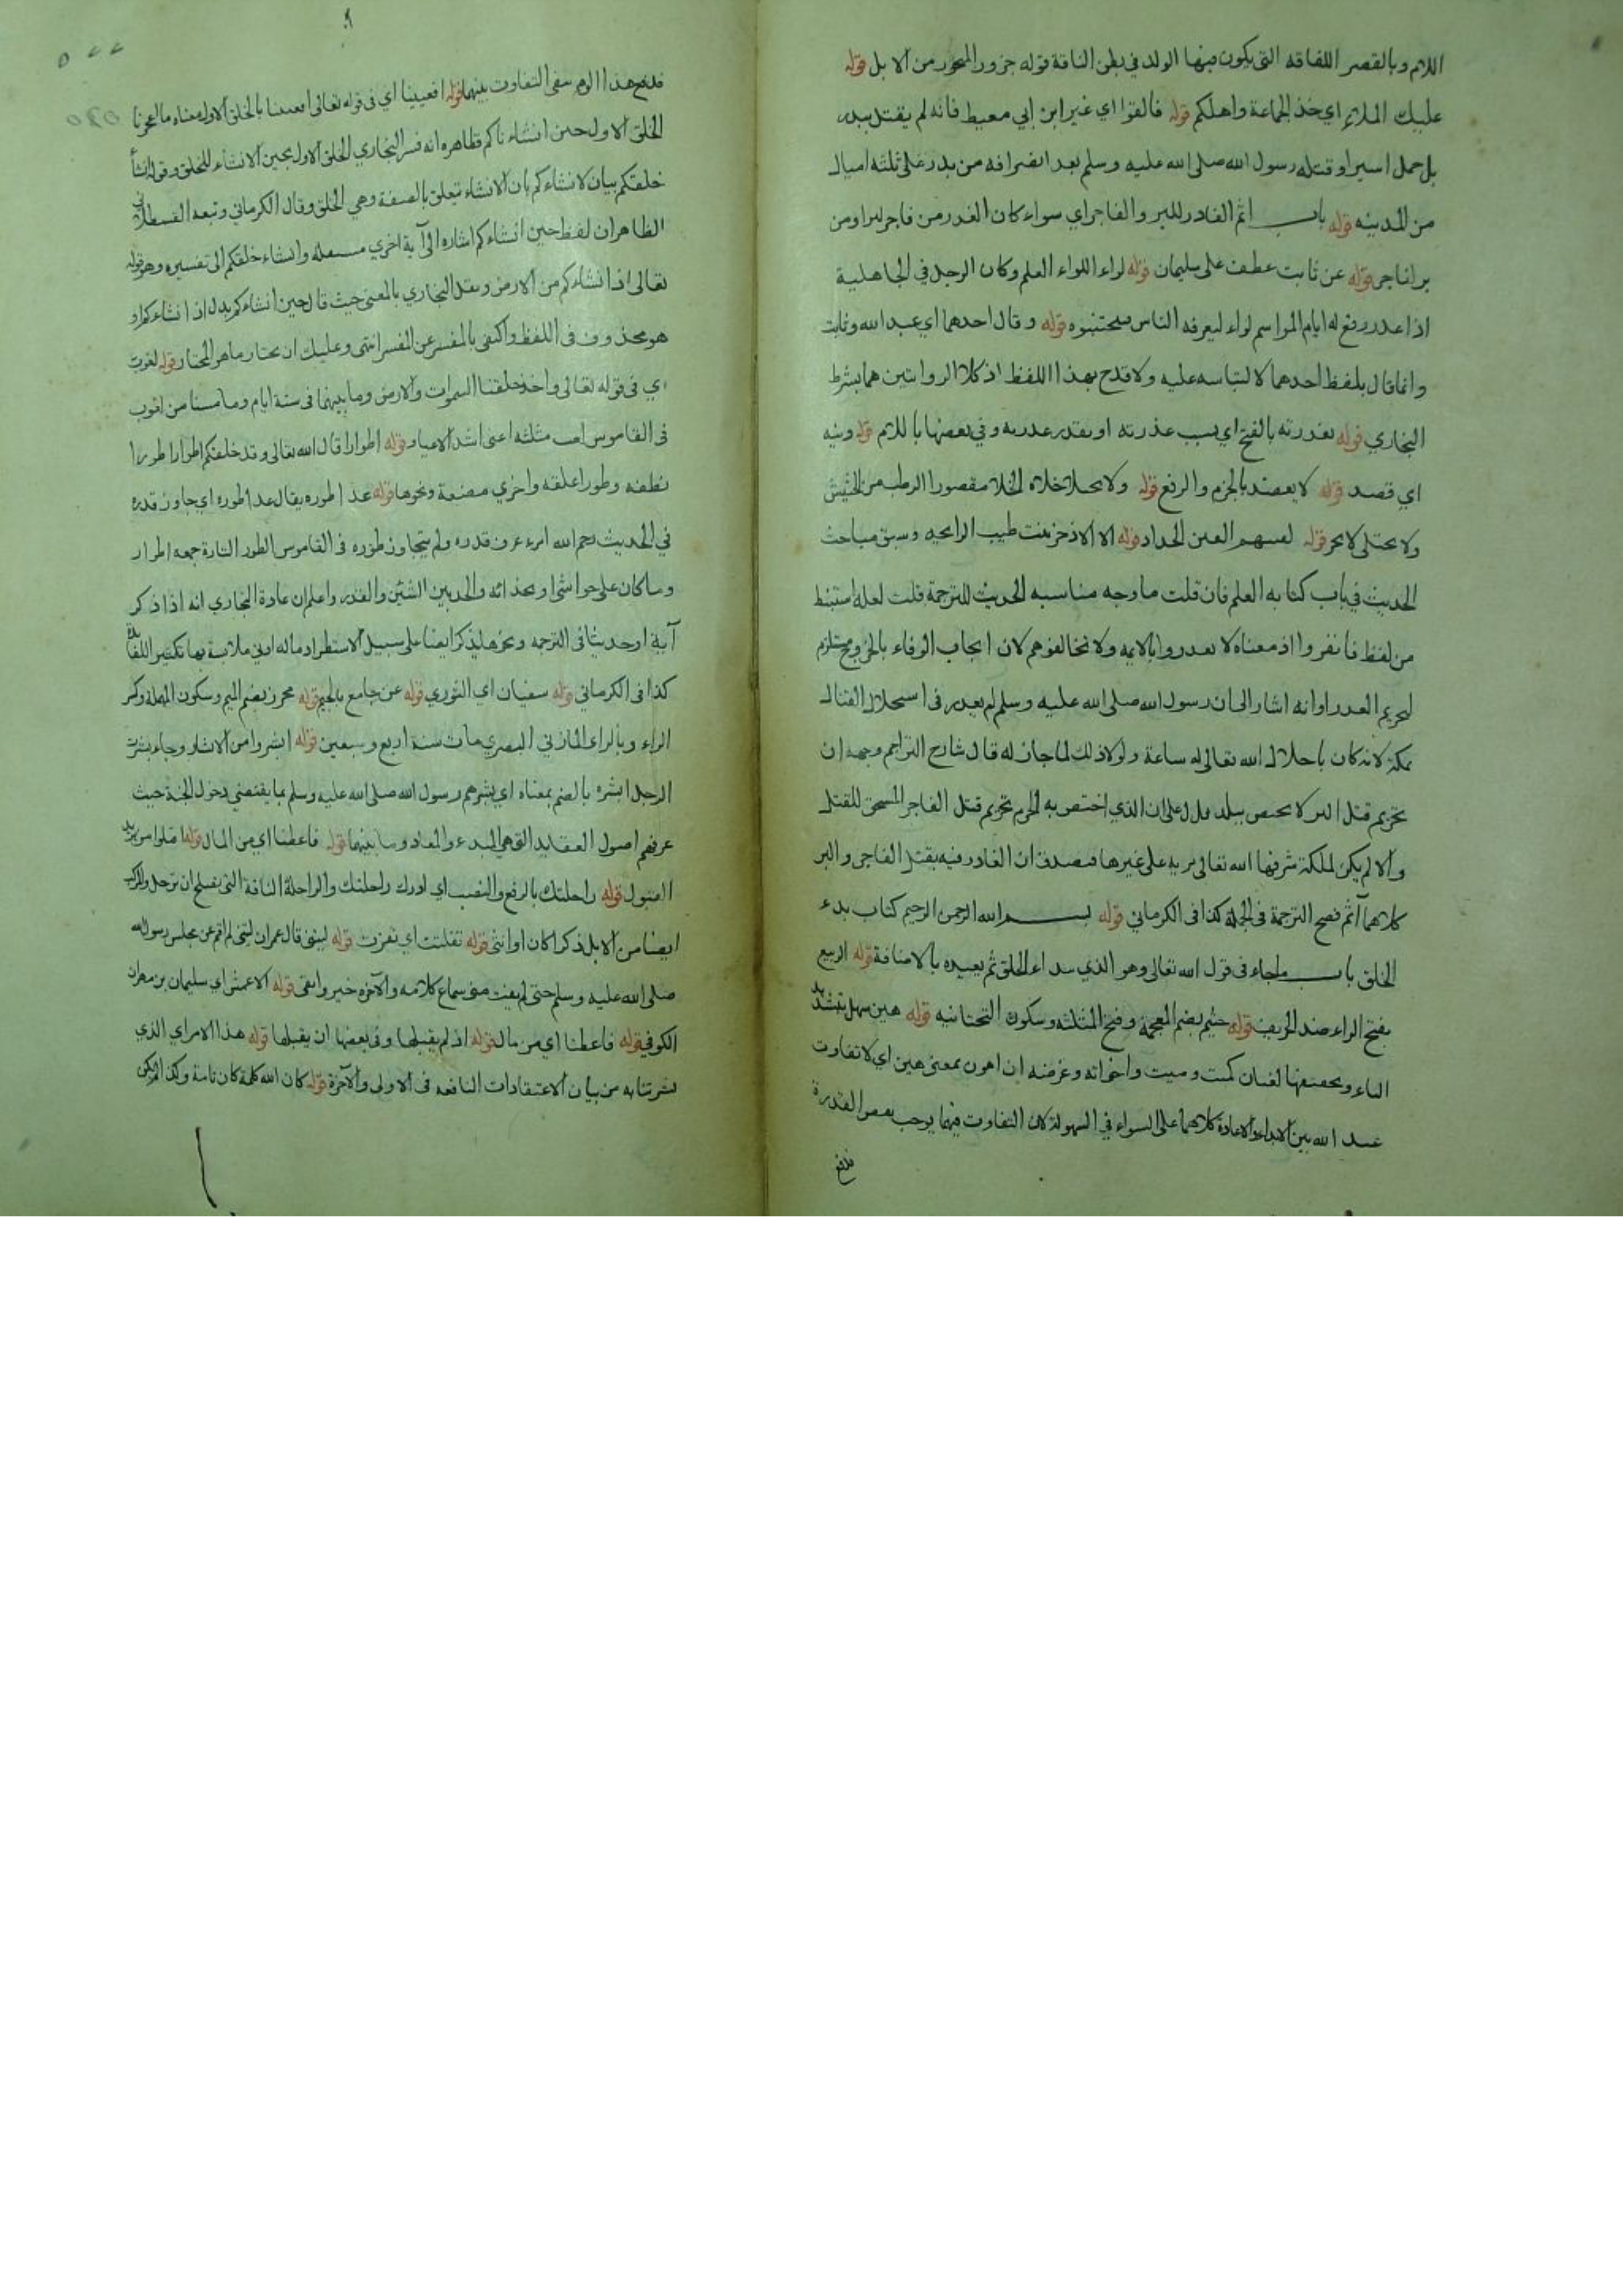 اللام وبالقصر اللفافة التي يكون فيها الولد في بطن الناقة قوله جزور المنحور من الابل قوله
عليك الملاء اي خذ الجماعة واهلكم قوله فالقوا اي غير ابن ابي معيط فانه لم يقتل ببدر
بل حمل اسيرا وقتله رسول الله صلى الله عليه وسلم بعد انصرافه من بدر على ثلثة اميال
من المدينه قوله باب اثم الغادر للبر والفاجر اي سواء كان الغدر من فاجر لبر او من
بر لفاجر قوله عن ثابت عطف على سليمان قوله لواء اللواء العلم وكان الرجل في الجاهلية
اذا غدر رفع له ايام المواسم لواء ليعرفه الناس فيجتنبوه قوله وقال احدهما اي عبد الله وثابت
وانما قال بلفظ احدهما لالتباسه عليه ولا قدح بهذا اللفظ اذ كلا الروايتين هما بشرط
البخاري قوله بغدرته بالفتح اي بسبب غدرته او بقدر غدرته وفي بعضها باللام قوله ونيه
اي قصد قوله لا يعضد بالجزم والرفع قوله ولا يختلا خلاه الخلا مقصورا الرطب من الحشيش
ولا يختلى لا يجز قوله لقينهم القين الحداد قوله الا الاذخر نبت طيب الرايحه وسبق مباحث
الحديث في باب كتابه العلم فان قلت ما وجه مناسبه الحديث للترجمة قلت لعله استنبط
من لفظ فانفروا اذ معناه لا تغدروا بالايمه ولا تخالفوهم لان ايجاب الوفاء بالخروج مستلزم
لتحريم الغدر او انه اشار الى ان رسول الله صلى الله عليه وسلم لم يغدر في استحلال القتال
بمكة لانه كان باحلال الله تعالى له ساعة ولولا ذلك لما جاز له قال شارح التراجم وجهه ان
تحريم قتل البر لا يختص ببلد فدل على ان الذي اختص به الحرم تحريم قتل الفاجر المستحق للقتل
والا لم يكن لمكة شرفها الله تعالى مزية على غيرها فيصدق ان الغادر فيه بقتل الفاجر والبر
كلاهما آثم فصح الترجمة في الجملة كذا في الكرماني قوله بسم الله الرحمن الرحيم كتاب بدء
الخلق باب ما جاء في قول الله تعالى وهو الذي يبدأ الخلق ثم يعيده بالاضافة قوله الربيع
بفتح الراء ضد الخريف قوله خثيم بضم المعجمة وفتح المثلثه وسكون التحتانيه قوله هين سهل بتشديد
الياء وبخفيفها لغتان كميت وميت واخواته وغرضه ان اهون بمعنى هين اي لا تفاوت
عند الله بين الابداء والاعادة كلاهما على السواء في السهولة لان التفاوت فيهما يوجب بعض القدرة
فدفع
فدفع هذا الوهم بنفي التفاوت بينهما قوله افعيينا اي في قوله تعالى افعيينا بالخلق الاول معناه ما اعجزنا
الخلق الاول حين انشاناكم ظاهره انه فسر البخاري الخلق الاول بحين الانشاء للخلق وقوله انشأ
خلقكم بيان لانشاءكم بان الانشاء تعلق بالصفة وهي الخلق وقال الكرماني وتبعه القسطلاني
الظاهر ان لفظ حين انشاءكم اشاره الى آية اخري مستقله وانشاء خلقكم الى تفسيره وهو قوله
تعالى اذ انشاءكم من الارض ونقل البخاري بالمعنى حيث قال حين انشاءكم بدل اذ انشاءكم او
هو محذوف في اللفظ واكتفى بالمفسر عن المفسر انتهى وعليك ان تختار ما هو المختار قوله لغوب
اي في قوله تعالى ولقد خلقنا السموات والارض وما بينهما في ستة ايام وما مسنا من لغوب
في القاموس لغب مثلثه اعيى اشد الاعياء قوله اطوارا قال الله تعالى وقد خلقكم اطوارا طورا
نطفه وطورا علقه واخري مضغة ونحوها قوله عدا طوره يقال عدا طوره اي جاوز قدره
في الحديث رحم الله امرء عرف قدره ولم يتجاوز طوره في القاموس الطور التارة جمعه اطوار
وما كان على حد الشئ او بحذائه والحد بين الشيئين والقدر واعلم ان عادة البخاري انه اذا ذكر
آية او حديثا في الترجمه ونحوها يذكر ايضا على سبيل الاستطراد ماله ادنى ملابسة بها تكثيرا للفائدة
كذا في الكرماني قوله سفيان اي الثوري قوله عن جامع بالجيم قوله محرز بضم الميم وسكون المهملة وكسر
الراء وبالزاء المازني البصري مات سنة اربع وسبعين قوله ابشروا من الابشار وجاء بشرت
الرجل ابشره بالضم بمعناه اي بشرهم رسول الله صلى الله عليه وسلم بما يقتضي دخول الجنة حيث
عرفهم اصول العقايد التي هي المبدء والمعاد وما بينهما قوله فاعطنا اي من المال قوله اقبلوا من
القبول قوله راحلتك بالرفع والنصب اي ادرك راحلتك والراحلة الناقة التي تصلح ان ترحل والمركب
ايضا من الابل ذكرا كان او انثى قوله تفلتت اي نفرت قوله ليتني قال عمران ليتني لم اقم عن مجلس رسول الله
صلى الله عليه وسلم حتى لم يفت مني سماع كلامه والآخره خير وابقى قوله الاعمش اي سليمان بن مهران
الكوفي قوله فاعطنا اي من مال قوله اذ لم يقبلها وفي بعضها ان يقبلها قوله هذا الامر اي الذي
بشرتنا به من بيان الاعتقادات النافعه في الاولى والآخرة قوله كان الله كلمة كان تامة وكذا لم يكن